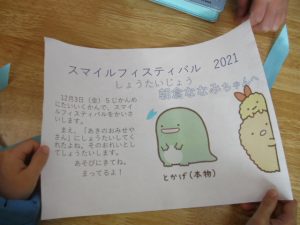 スマイルフィスティバル 2021
しょうたいじょう
朝倉ななみちゃんへ
12月3日（金）５じかんめ
にたいいくかんで、スマイ
ルフィスティバルをかいさ
いします。
まえ、「あきのおみせや
さん」にしょうたいしてく
れたよね。そのおれいとし
てしょうたいします。
あそびにきてね。
まってるよ！
とかげ（本物）